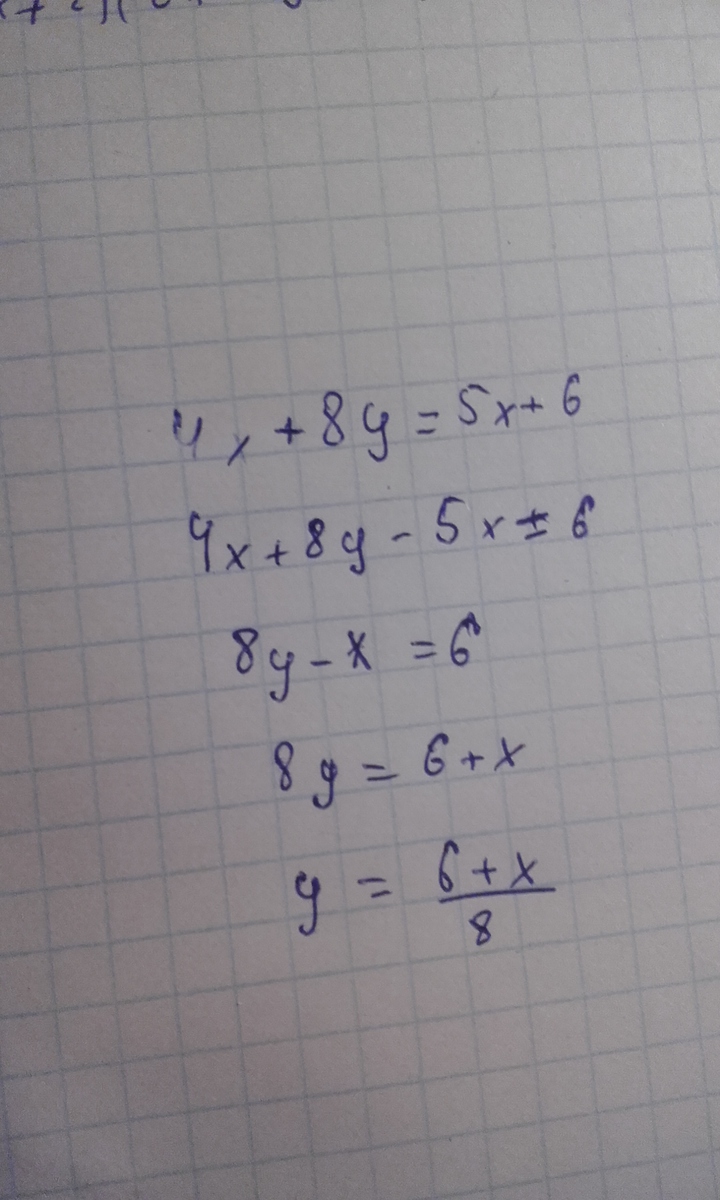 4x + 8y = 5x + 6
4x + 8y - 5x = 6
8y - x = 6
8y = 6 + x
y = \frac{6 + x}{8}